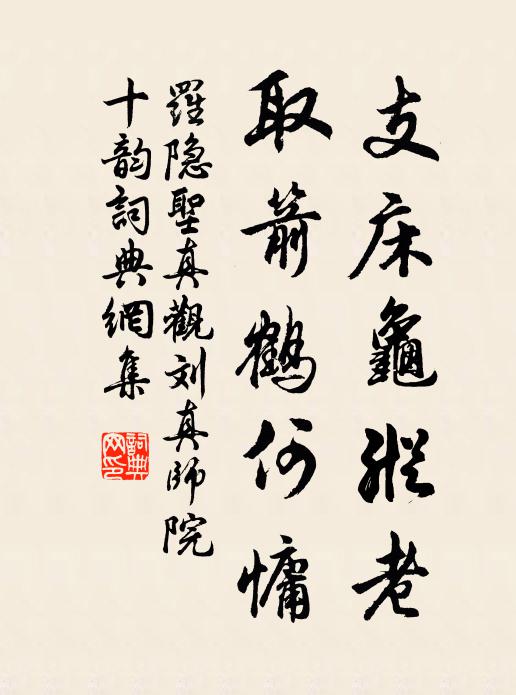 支床龜縱老
取箭鶴何慵
羅隐聖真觀刘真師院
十韵詞典網集
詞典網印